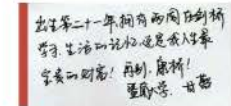 出生第二十一年,拥有两周在剑桥
学习、生活的记忆,这是我人生最
宝贵的财富!再别,康桥!
暨南大学. 甘